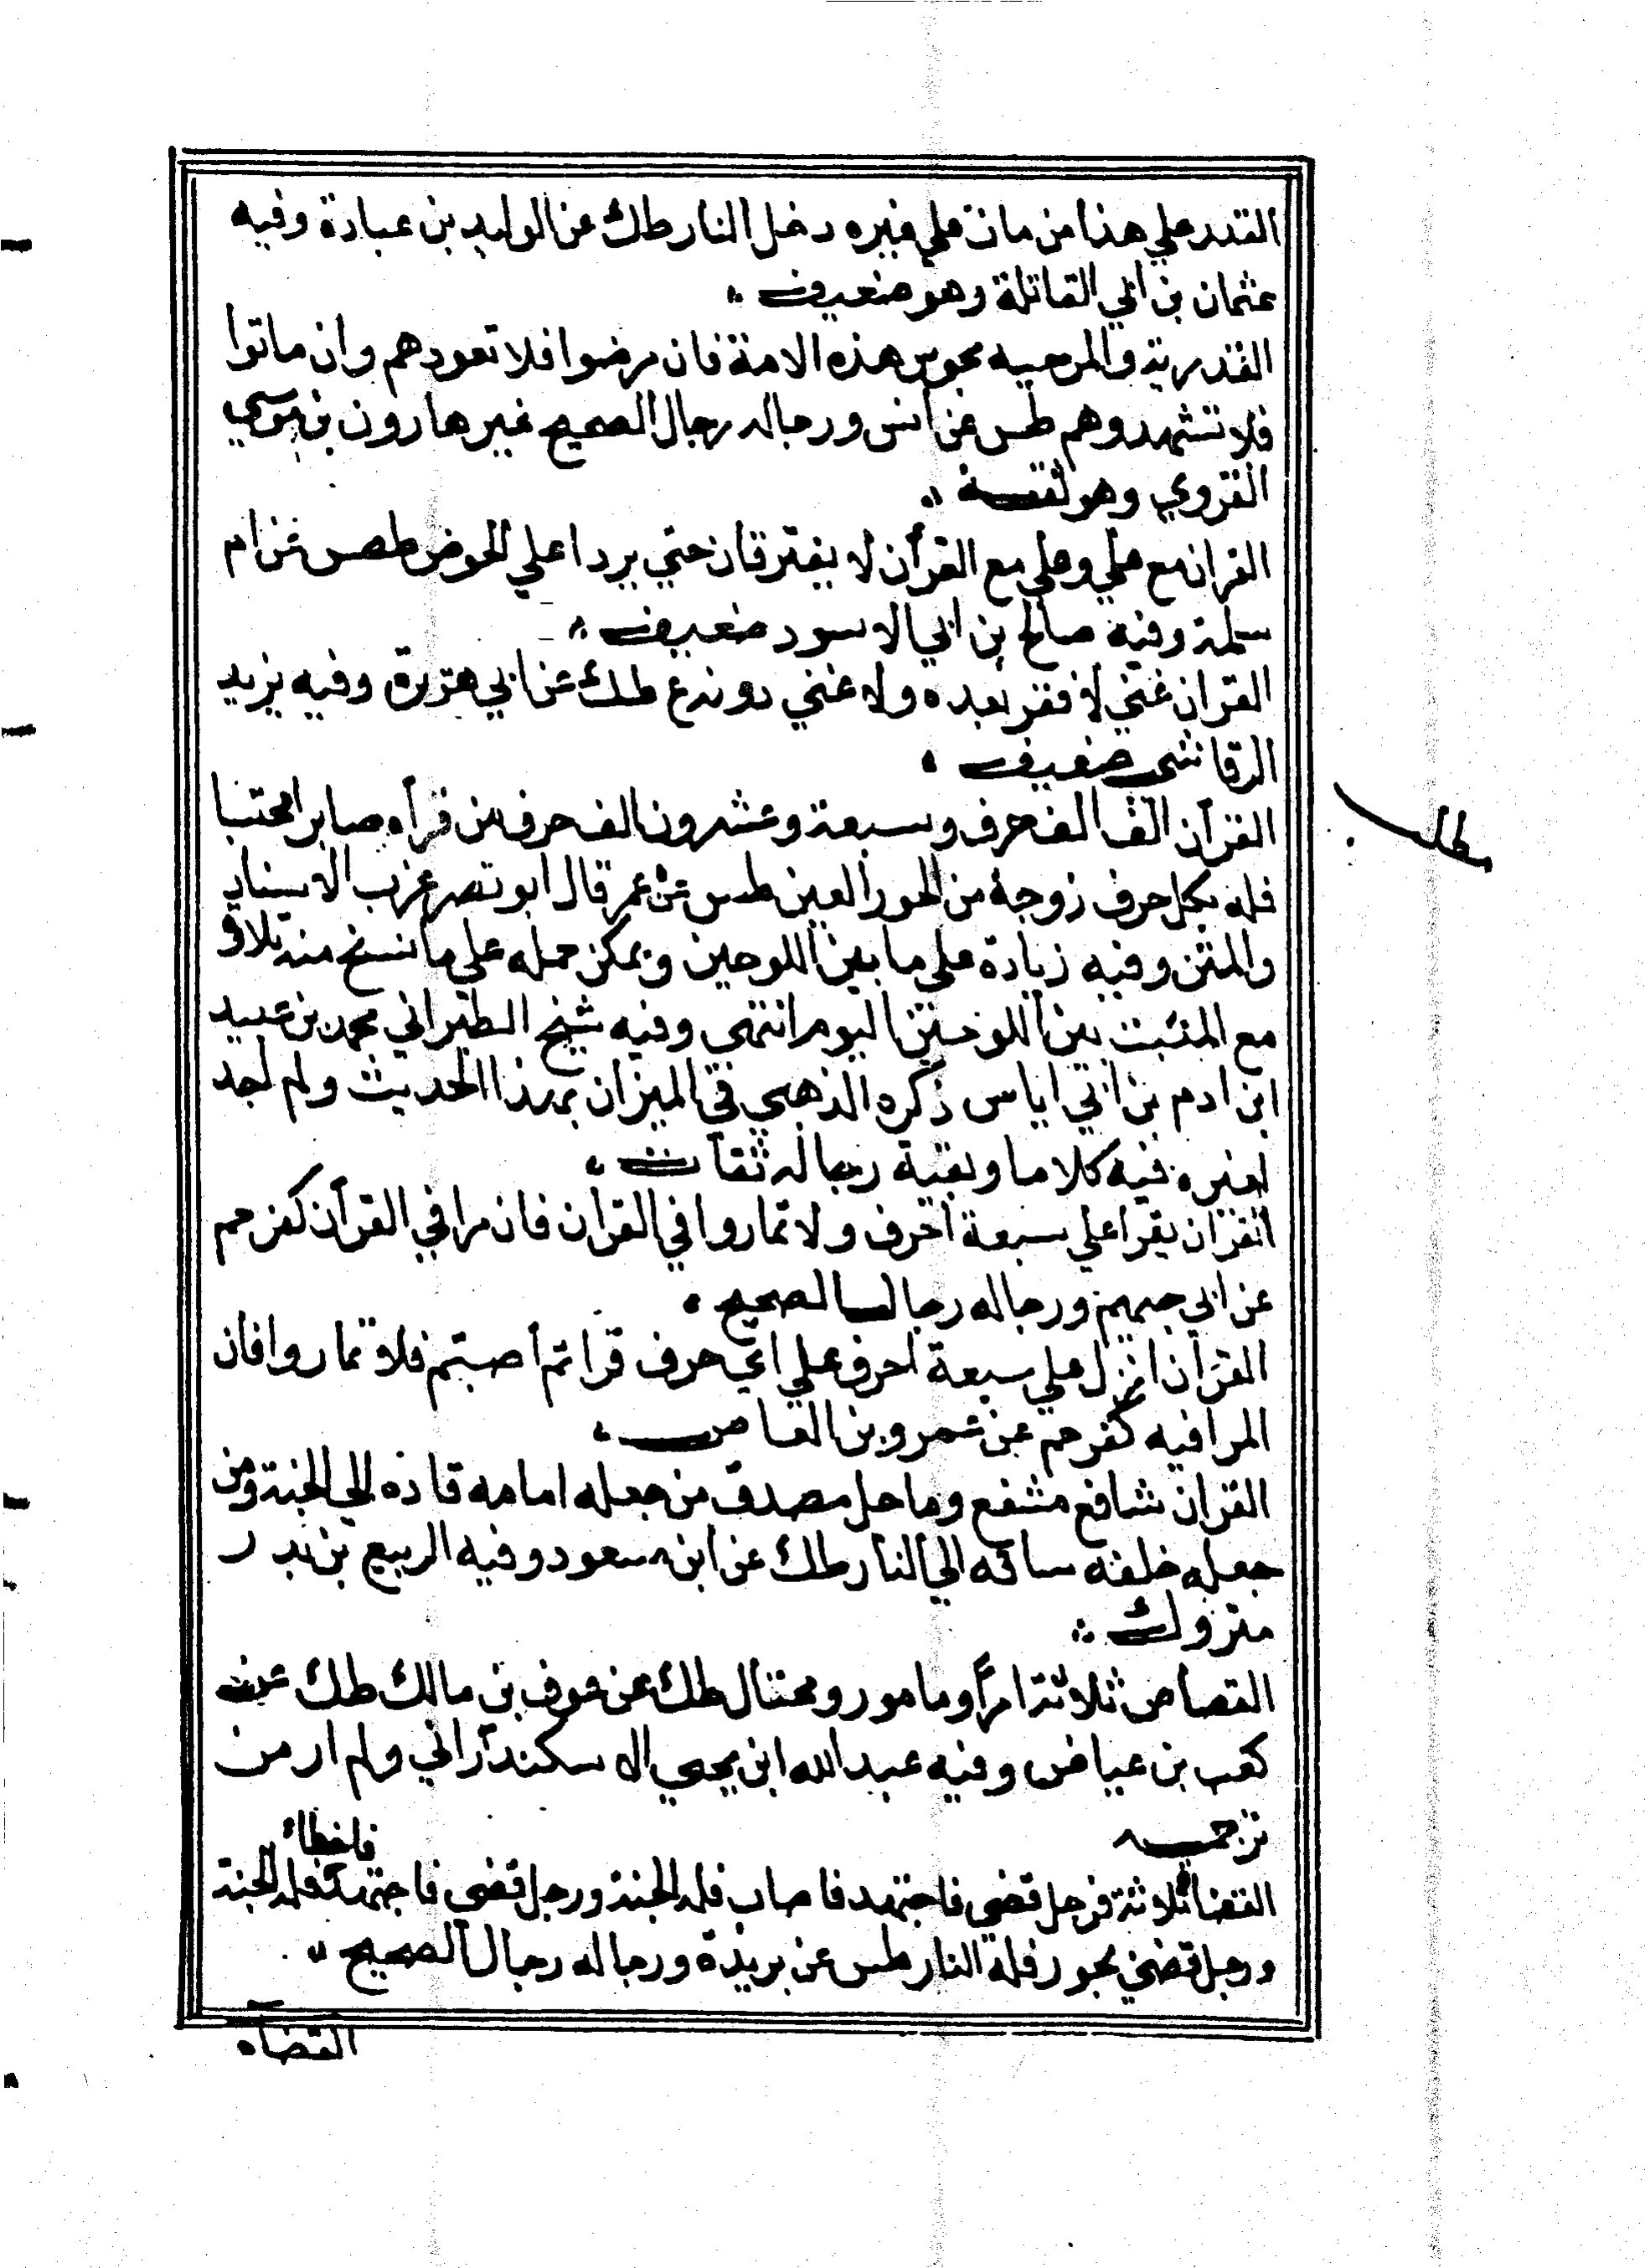 القدر علي هذا من مات علي غيره دخل النار طك عن الوليد بن عبادة وفيه
عثمان بن ابي القاتلة وهو ضعيف
القدرية والمرجيه مجوس هذه الامة فان مرضوا فلا تعودهم وان ماتوا
فلا تشهدوهم طس عن انس ورجاله رجال الصحيح غير هارون بن موسي
الفروي وهو ثقة
القران مع علي وعلي مع القرآن لا يفترقان حتي يردا علي الحوض طصس عن ام
سلمة وفيه صالح بن ابي الاسود ضعيف
القران غني لا فقر بعده ولا غني دونه ع طك عن ابي هريرة وفيه يزيد
الرقاشي ضعيف
القرآن الف الف حرف وسبعة وعشرون الف حرف من قرأه صابرا محتسبا
مطلب
فله بكل حرف زوجة من الحور العين طس عن عمر قال ابو نصر غريب الاسناد
والمتن وفيه زيادة علي ما بين اللوحين ويمكن حمله علي ما نسخ منه تلاوة
مع المثبت بين اللوحين اليوم انتهي وفيه شيخ الطبراني محمد بن عبيد
ابن ادم بن ابي اياس ذكره الذهبي في الميزان بهذا الحديث ولم اجد
لغيره فيه كلاما وبقية رجاله ثقات
القران يقرا علي سبعة احرف ولا تماروا في القران فان مرا في القرآن كفر حم
عن ابي جهيم ورجاله رجال الصحيح
القرآن انزل علي سبعة احرف علي اي حرف قراتم أصبتم فلا تماروا فان
المرا فيه كفر حم عن عمرو بن العاص
القران شافع مشفع وماحل مصدق من جعله امامه قاده الي الجنة ومن
جعله خلفه ساقه الي النار طك عن ابن مسعود وفيه الربيع بن بدر
متروك
القصاص ثلاثة امرا ومامور ومحتال طك عن عوف بن مالك طك عن
كعب بن عياض وفيه عبد الله ابن يحيي الاسكندراني ولم ار من
ترجمه
فاخطا
القضاة ثلاثة فرجل قضي فاجتهد فاصاب فله الجنة ورجل قضي فاجتهد فله الجنة
ورجل قضي بجور فله النار طس عن بريدة ورجاله رجال الصحيح
القضاه